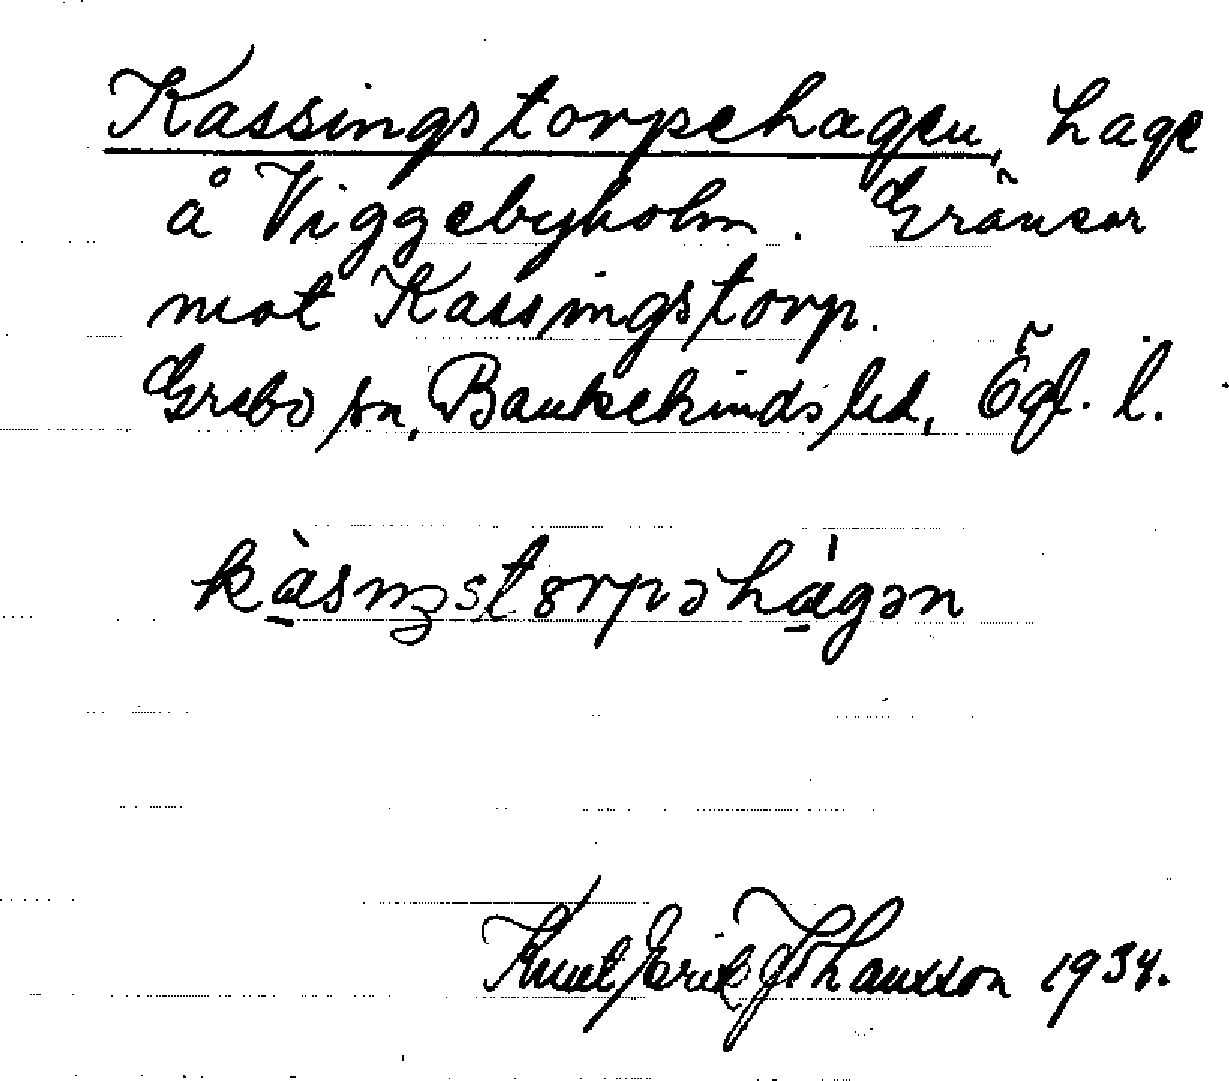 Kassingstorpehagen, hage
å Viggebyholm. Gränsar
mot Kassingstorp.
Grebo sn, Bankekinds hd, Ögl. l.
kàsıŋstorpəhágən
Knut Erik Johansson 1934.